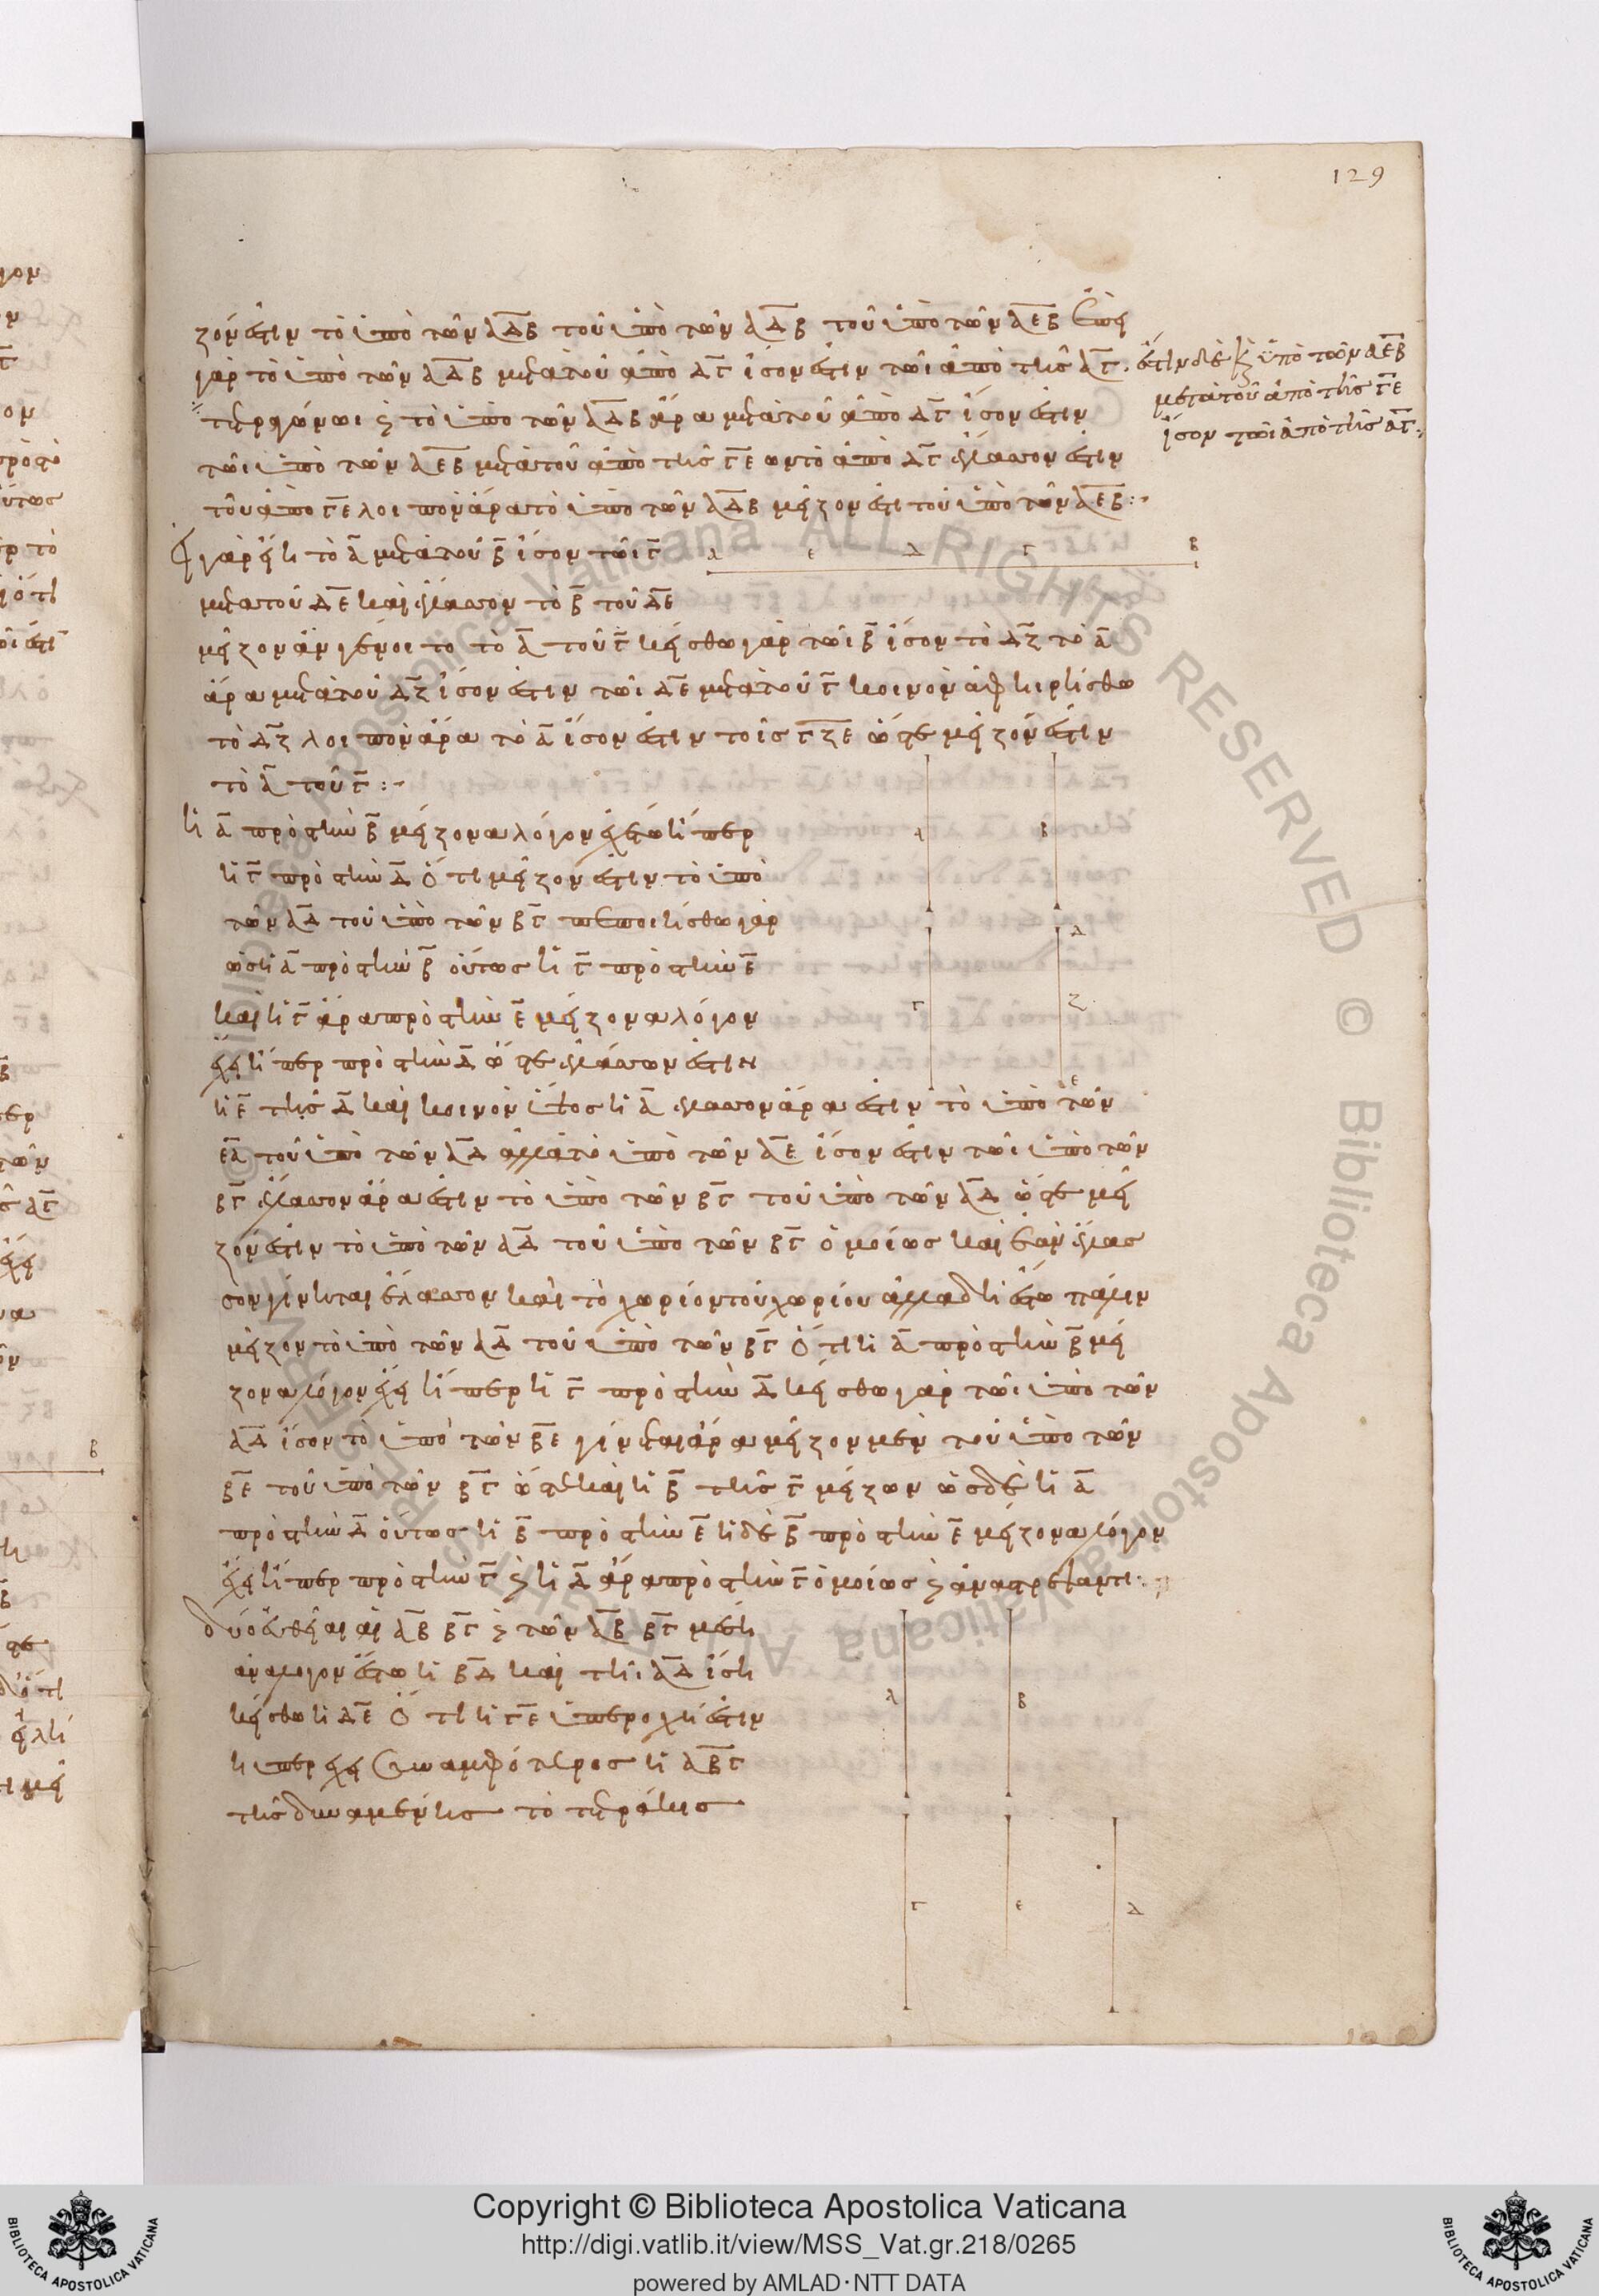 129
ζόν ἐστιν τὸ ὑπὸ τῶν ΑΔΒ τοῦ ὑπὸ τῶν ΑΔΒ τοῦ ὑπὸ τῶν ΑΕΒ ἐπεὶ
γὰρ τὸ ὑπὸ τῶν ΑΔΒ μετὰ τοῦ ἀπὸ ΔΓ ἴσον ἐστὶν τῶι ἀπὸ τῆς ΑΓ. ἔστιν δὲ καὶ ὑπὸ τῶν ΑΕΒ
μετὰ τοῦ ἀπὸ τῆς ΓΕ
ἴσον τῶι ἀπὸ τῆς ΑΓ:
τετραγώνωι καὶ τὸ ὑπὸ τῶν ΑΔΒ ἄρα μετὰ τοῦ ἀπὸ ΔΓ ἴσον ἐστὶν
τῶι ὑπὸ τῶν ΑΕΒ μετὰ τοῦ ἀπὸ τῆς ΓΕ ὧν τὸ ἀπὸ ΔΓ ἔλασσον ἐστὶν
τοῦ ἀπὸ ΓΕ λοιπὸν ἄρα τὸ ὑπὸ τῶν ΑΔΒ μεῖζον ἐστι τοῦ ὑπὸ τῶν ΑΕΒ:
Εἰ γὰρ εἴη τὸ Α μετὰ τοῦ Β ἴσον τῶι Γ
Α Ε Δ Γ Β
μετὰ τοῦ ΔΕ καὶ ἔλασσον τὸ Β τοῦ ΔΕ
μεῖζον ἂν γένοιτο τὸ Α τοῦ Γ κείσθω γὰρ τῶι Β ἴσον τὸ ΔΖ τὸ Α
ἄρα μετὰ τοῦ ΔΖ ἴσον ἐστὶν τῶι ΔΕ μετὰ τοῦ Γ κοινὸν ἀφηιρήσθω
τὸ ΔΖ λοιπὸν ἄρα τὸ Α ἴσον ἐστὶν τοῖς ΓΖΕ ὥστε μεῖζόν ἐστιν
τὸ Α τοῦ Γ:
ἡ Α πρὸς τὴν Β μείζονα λόγον ἐχέτω ἤπερ
Α Β
ἡ Γ πρὸς τὴν Δ ὅτι μεῖζόν ἐστιν τὸ ὑπὸ
τῶν ΑΔ τοῦ ὑπὸ τῶν ΒΓ πεποιήσθω γὰρ
Δ
ὡς ἡ Α πρὸς τὴν Β οὕτως ἡ Γ πρὸς τὴν Ε
καὶ ἡ Γ ἄρα πρὸς τὴν Ε μείζονα λόγον
Γ Ζ
ἔχει ἤπερ πρὸς τὴν Δ ὥστε ἐλάσσων ἐστὶν
Ε
ἡ Ε τῆς Δ καὶ κοινὸν ὕψος ἡ Α ἔλασσον ἄρα ἐστὶν τὸ ὑπὸ τῶν
ΕΑ τοῦ ὑπὸ τῶν ΑΔ ἀλλὰ τὸ ὑπὸ τῶν ΑΕ ἴσον ἐστὶν τῶι ὑπὸ τῶν
ΒΓ ἔλασσον ἄρα ἐστὶν τὸ ὑπὸ τῶν ΒΓ τοῦ ὑπὸ τῶν ΑΔ ὥστε μεῖ
ζόν ἐστιν τὸ ὑπὸ τῶν ΑΔ τοῦ ὑπὸ τῶν ΒΓ ὁμοίως καὶ ἐὰν ἔλασ
σον γίνηται ἔλασσον καὶ τὸ χωρίον τοῦ χωρίου ἀλλὰ δὴ ἔστω πάλιν
μεῖζον τὸ ὑπὸ τῶν ΑΔ τοῦ ὑπὸ τῶν ΒΓ ὅτι ἡ Α πρὸς τὴν Β μεί
ζονα λόγον ἔχει ἤπερ ἡ Γ πρὸς τὴν Δ κείσθω γὰρ τῶι ὑπὸ τῶν
ΑΔ ἴσον τὸ ὑπὸ τῶν ΒΕ γίνεται ἄρα μεῖζον μὲν τοῦ ὑπὸ τῶν
ΒΕ τοῦ ὑπὸ τῶν ΒΓ ὥστε καὶ ἡ Β τῆς Γ μείζων ὡς δὲ ἡ Α
πρὸς τὴν Δ οὕτως ἡ Β πρὸς τὴν Ε ἡ δὲ Β πρὸς τὴν Ε μείζονα λόγον
ἔχει ἤπερ πρὸς τὴν Γ καὶ ἡ Δ ἄρα πρὸς τὴν Γ ὁμοίως καὶ ἀναστρέψαντι:
δύο εὐθεῖαι αἱ ΑΒ ΒΓ καὶ τῶν ΑΒ ΒΓ μέση
ἀνάλογον ἔστω ἡ ΒΔ καὶ τῆι ΑΔ ἴση
Α Β
κείσθω ἡ ΔΕ ὅτι ἡ ΓΕ ὑπεροχή ἐστιν
ἧι ὑπερέχει συναμφότερος ἡ ΑΒΓ
τῆς δυναμένης τὸ τετράκις
Γ Ε Δ
Copyright © Biblioteca Apostolica Vaticana
http://digi.vatlib.it/view/MSS_Vat.gr.218/0265
powered by AMLAD·NTT DATA